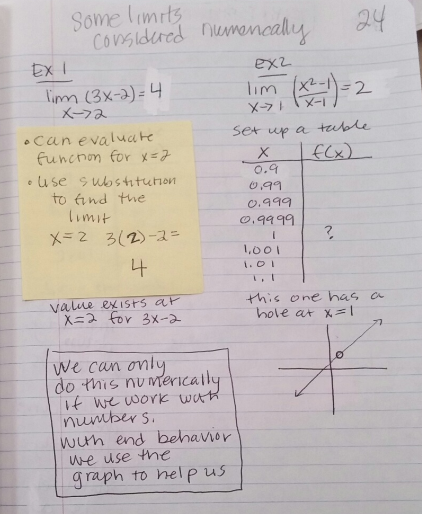 Some limits
considered numerically
24
Ex 1
lim (3x-2) = 4
x→2
• Can evaluate
function for x=2
• Use substitution
to find the
limit
x=2 3(2)-2=
4
value exists at
x=2 for 3x-2
We can only
do this numerically
if we work with
numbers.
With end behavior
we use the
graph to help us
Ex 2
lim (x²-1/x-1) = 2
x→1
Set up a table
x f(x)
0.9
0.99
0.999
0.9999
1 ?
1.001
1.01
1.1
this one has a
hole at x=1